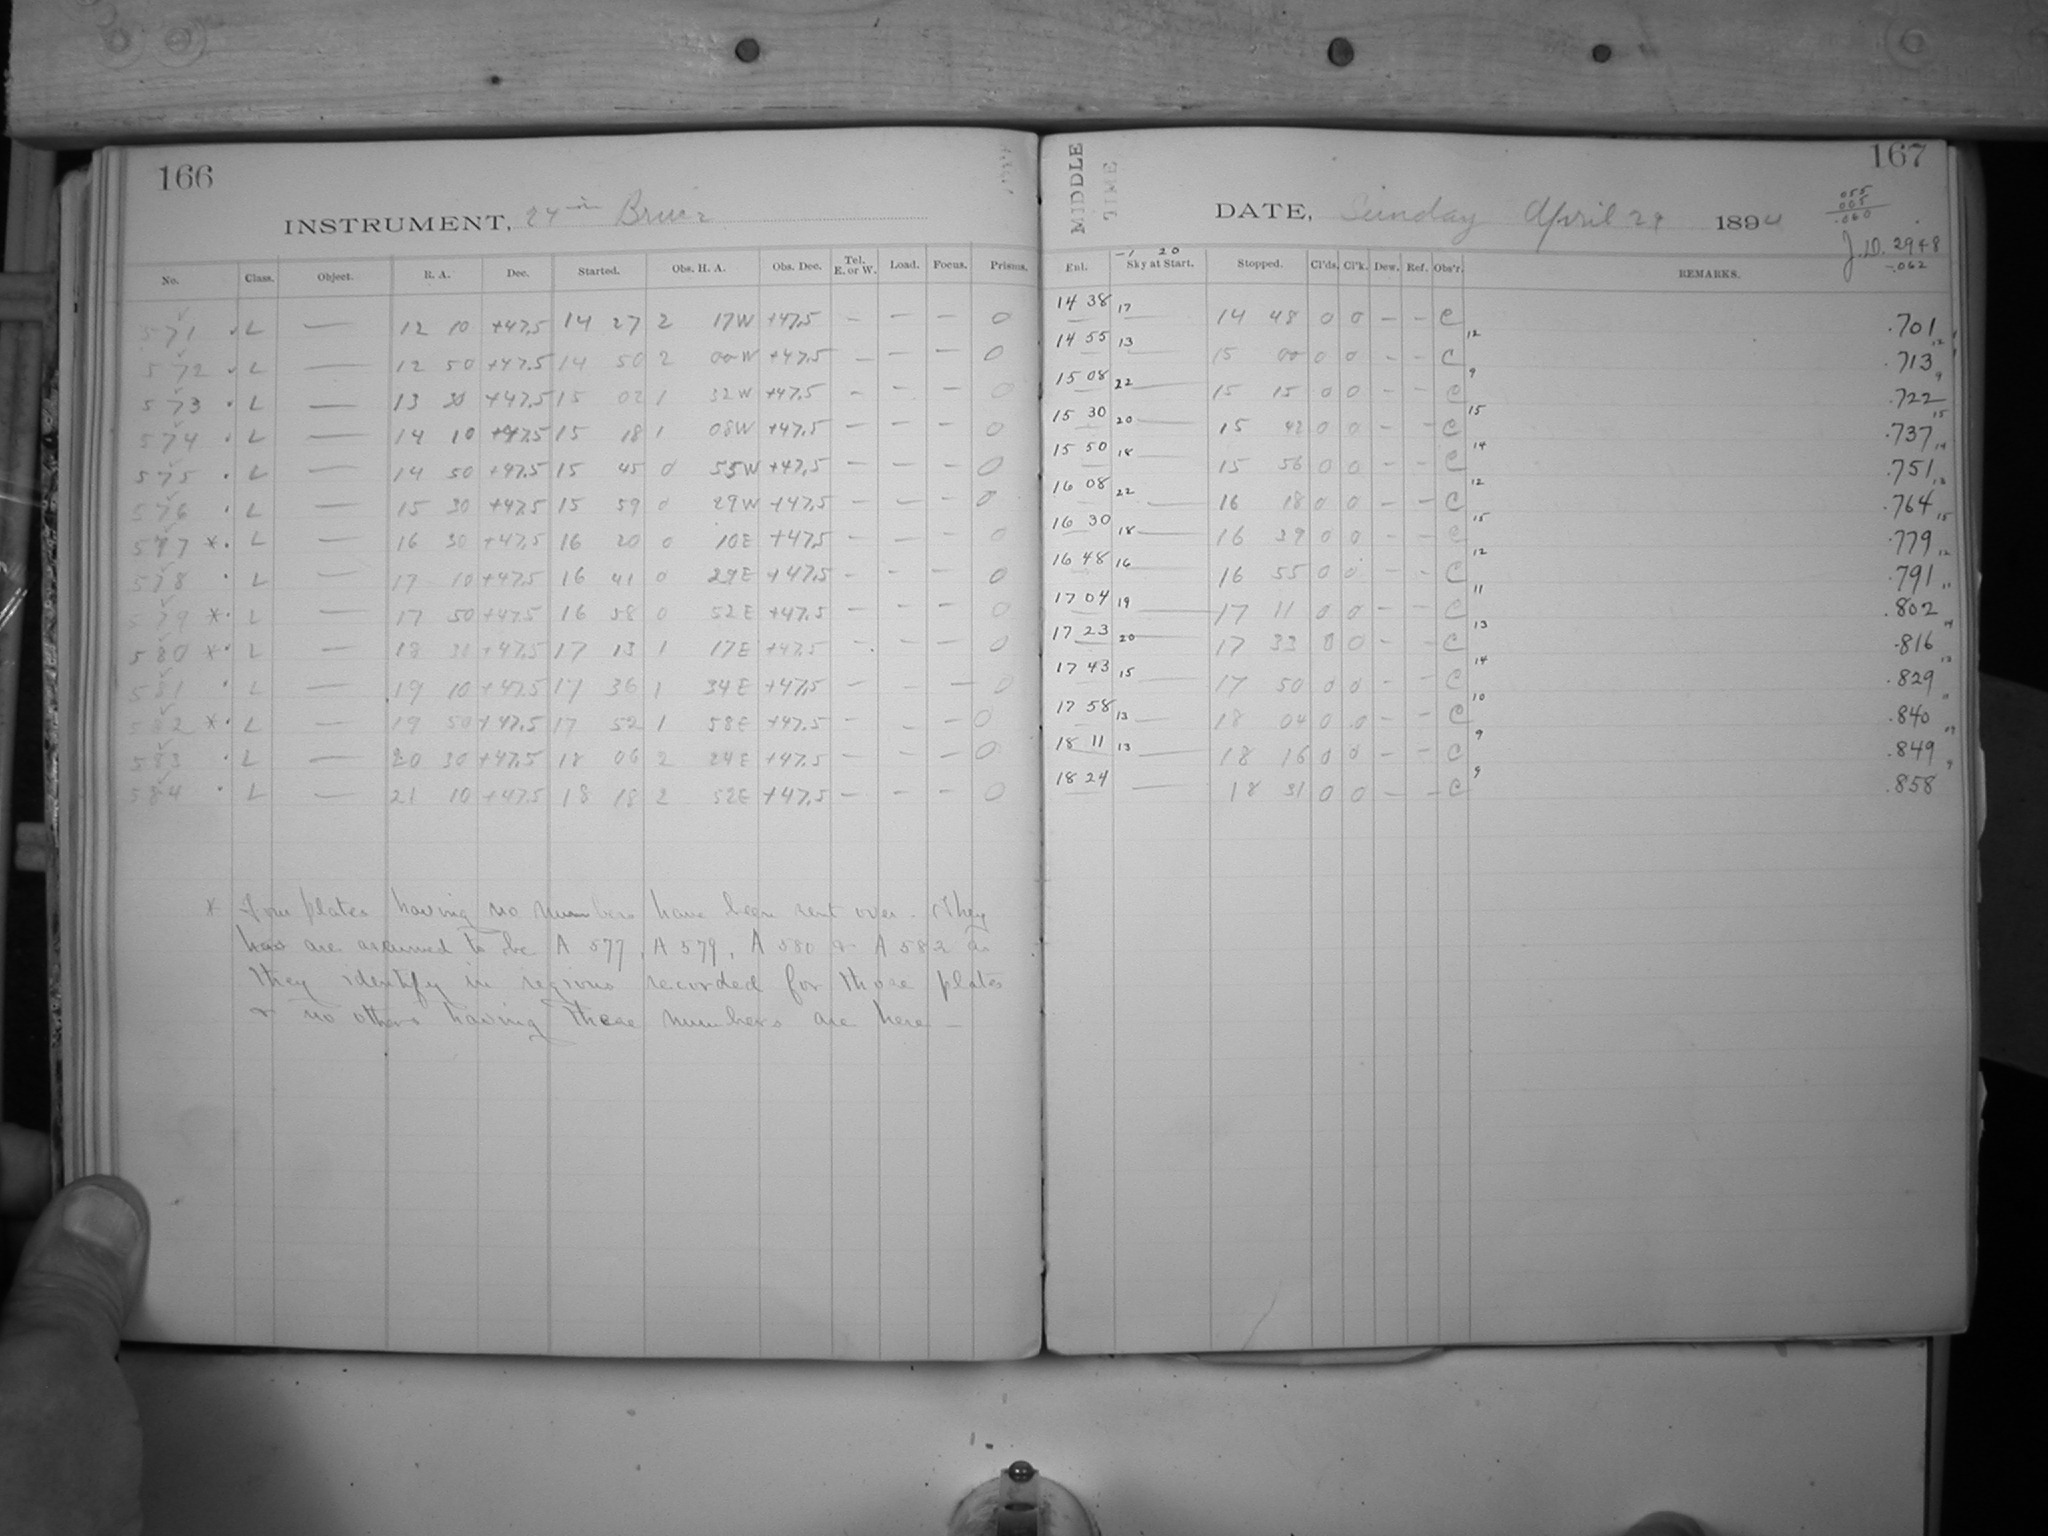 166
INSTRUMENT, 24 in Bruce
No. Class. Object. R. A. Dec. Started. Obs. H. A. Obs. Dec. Tel. E. or W. Load. Focus. Prisms.
571 L — 12 10 +47.5 14 27 2 17W +47.5 — — — 0
572 L — 12 50 +47.5 14 50 2 00W +47.5 — — — 0
573 L — 13 30 +47.5 15 02 1 32W +47.5 — 0
574 L — 14 10 +47.5 15 18 1 08W +47.5 — — — 0
575 L — 14 50 +47.5 15 45 0 55W +47.5 — — — 0
576 L — 15 30 +47.5 15 59 0 29W +47.5 — — — 0
577 * L — 16 30 +47.5 16 20 0 10E +47.5 — — — 0
578 L — 17 10 +47.5 16 41 0 29E +47.5 — — — 0
579 * L — 17 50 +47.5 16 58 0 52E +47.5 — — — 0
580 * L — 18 30 +47.5 17 13 1 17E +47.5 — — — 0
581 L — 19 10 +47.5 17 36 1 34E +47.5 — — — 0
582 * L — 19 50 +47.5 17 52 1 58E +47.5 — — — 0
583 L — 20 30 +47.5 18 06 2 24E +47.5 — — — 0
584 L — 21 10 +47.5 18 18 2 52E +47.5 — — — 0
* Four plates having no numbers have been sent over. They
are assumed to be A 577, A 579, A 580 & A 582 as
they identify in regions recorded for those plates
& no others having these numbers are here —
167
MIDDLE
TIME
DATE, Sunday April 29 1894
.055
.005
.060
J.D. 2948
-.062
-1 20
Enl. Sky at Start. Stopped. Cl'ds. Cl'k. Dew. Ref. Obs'r. REMARKS.
14 38 17 — 14 48 0 0 — — C 12 .701 12
14 55 13 — 15 00 0 0 — — C 9 .713 9
15 08 22 — 15 15 0 0 — — C 15 .722 15
15 30 20 — 15 42 0 0 — — C 14 .737 14
15 50 18 — 15 56 0 0 — — C 12 .751 13
16 08 22 — 16 18 0 0 — — C 15 .764 15
16 30 18 — 16 39 0 0 — — C 12 .779 12
16 48 16 — 16 55 0 0 — — C 11 .791 11
17 04 19 — 17 11 0 0 — — C 13 .802 14
17 23 20 — 17 33 0 0 — — C 14 .816 13
17 43 15 — 17 50 0 0 — — C 10 .829 11
17 58 13 — 18 04 0 0 — — C 9 .840 09
18 11 13 — 18 16 0 0 — — C 9 .849 9
18 24 — 18 31 0 0 — — C .858